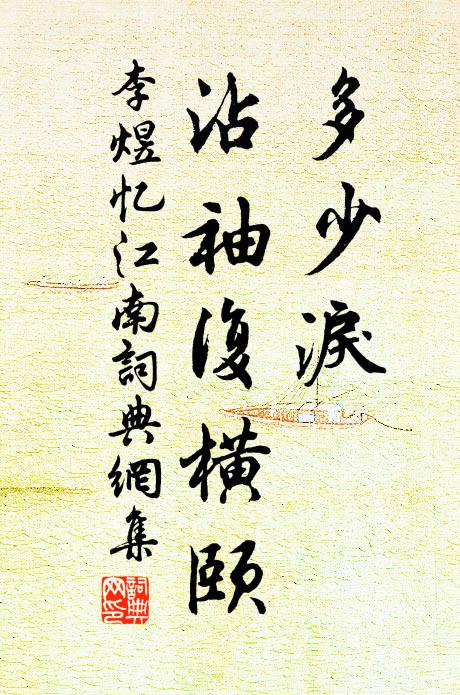 多少淚
沾袖復橫頤
李煜忆江南詞典網集
詞典网印